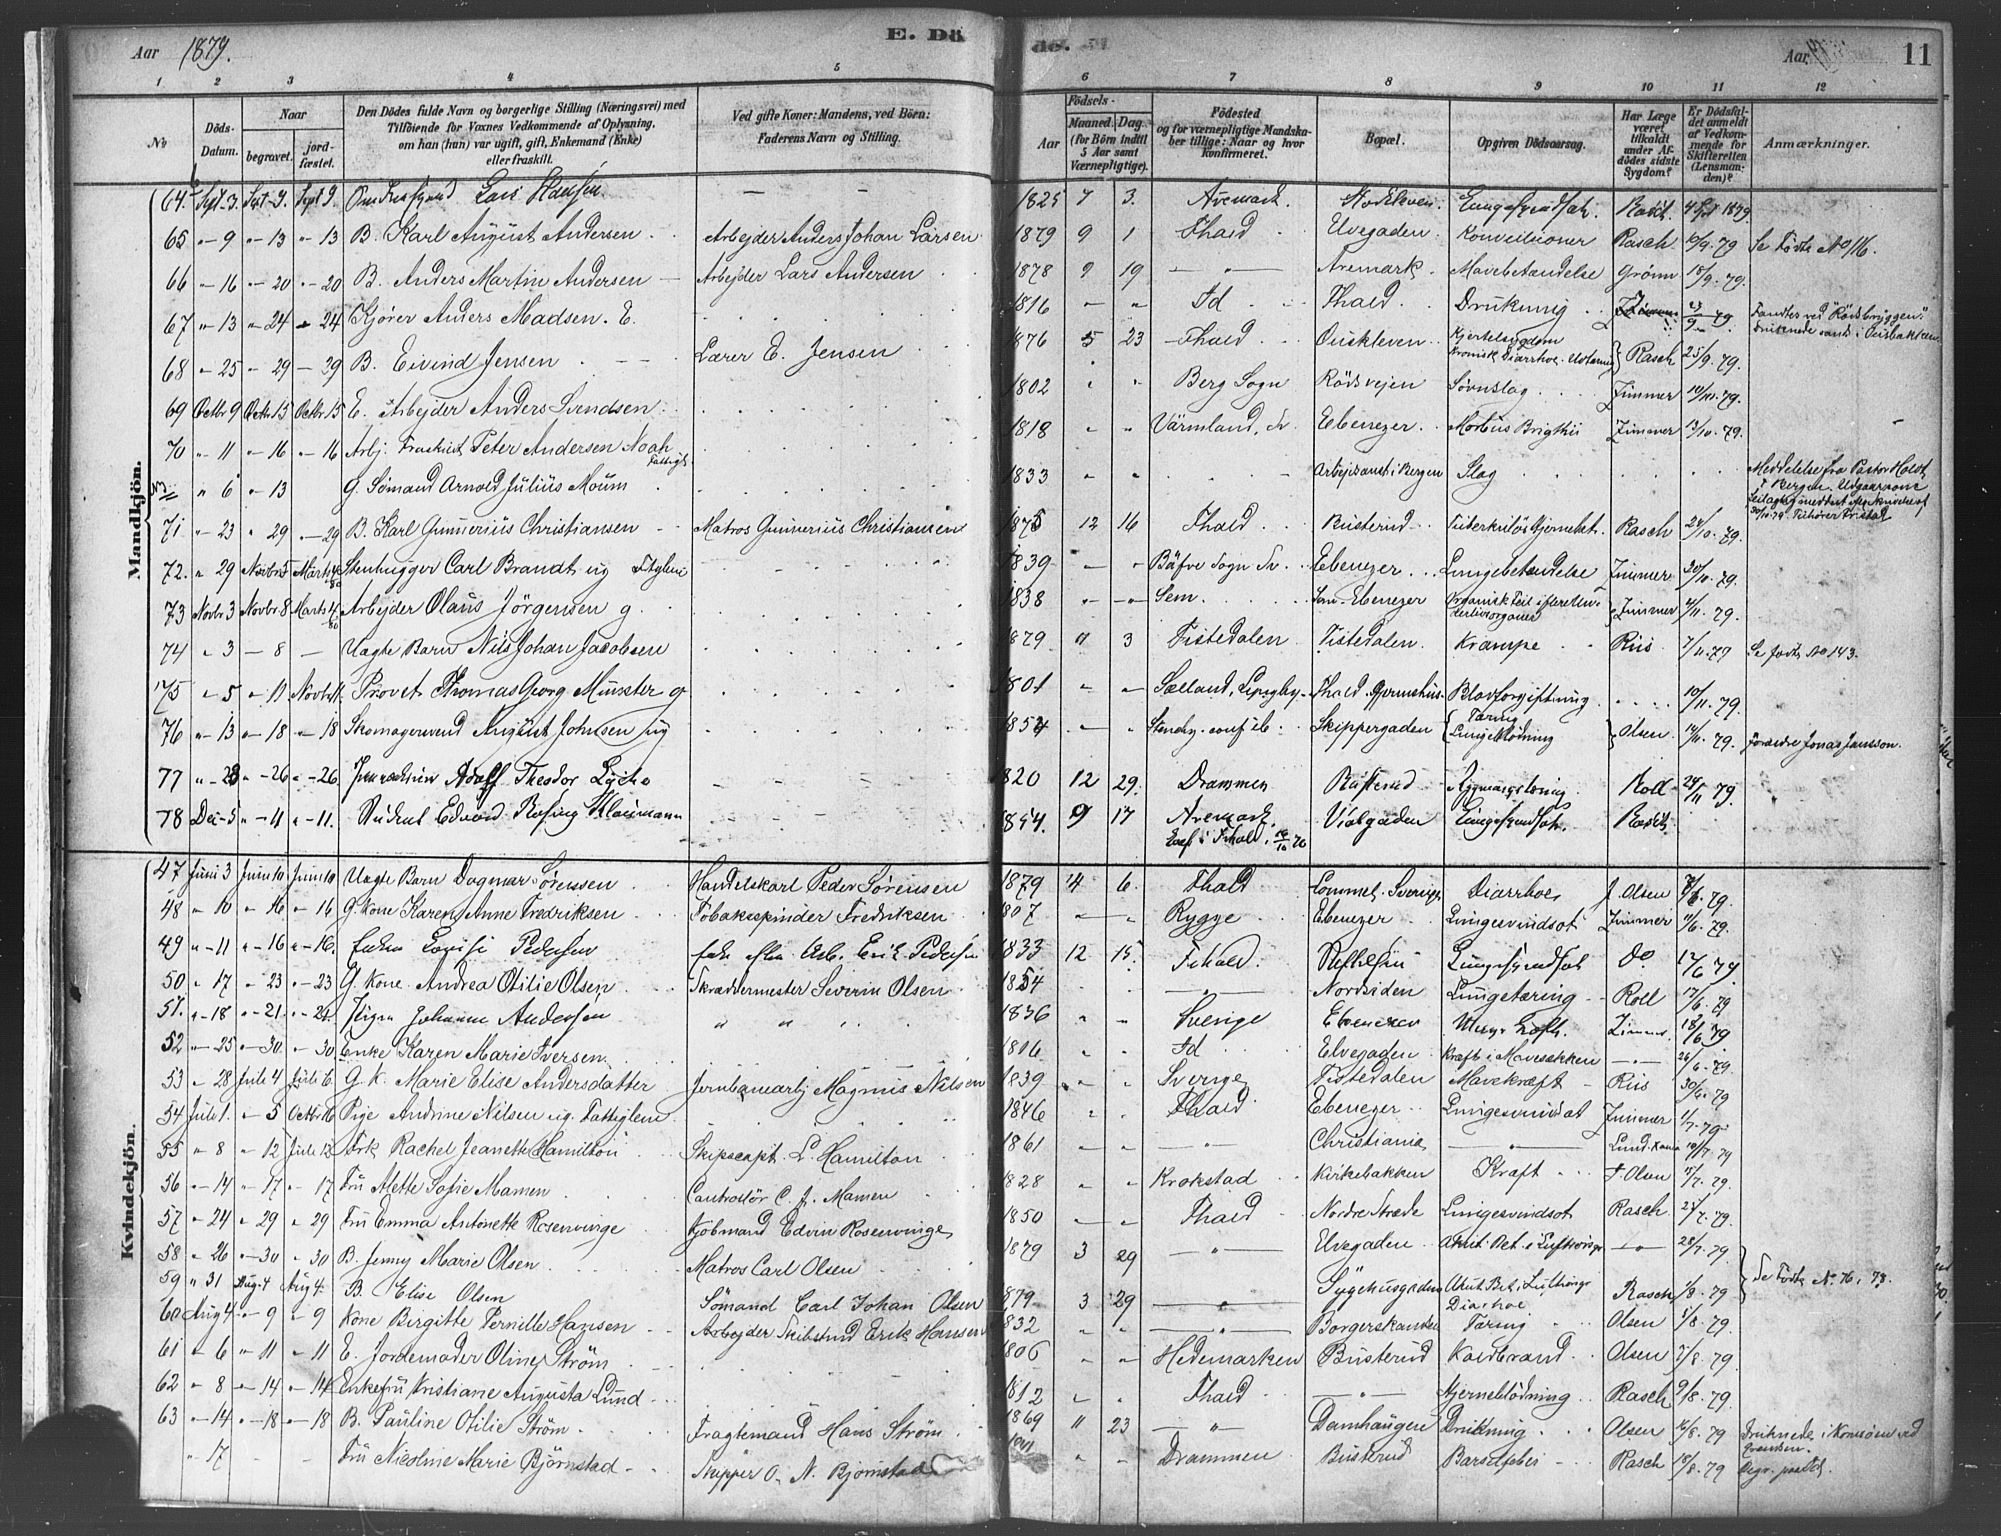 Aar 1879. E. Dö de. Aar 11
1 2 3 4 5 6 7 8 9 10 11 12
No Döds-Datum. Naar begravet. jord-fæstet. Den Dödes fulde Navn og borgerlige Stilling (Næringsvei) med Tilföiende for Voxnes Vedkommende af Oplysning, om han (hun) var ugift, gift, Enkemand (Enke) eller fraskilt. Ved gifte Koner: Mandens, ved Börn: Faderens Navn og Stilling. Födsels- Aar Maaned. Dag. (for Börn indtil 5 Aar samt Værnepligtige). Födested og for værnepligtige Mandskaber tillige: Naar og hvor konfirmeret. Bopæl. Opgiven Dödsaarsag. Har Læge været tilkaldt under Afdödes sidste Sygdom? Er Dödsfaldet anmeldt af Vedkommende for Skifteretten (Lensmanden)? Anmærkninger.
Mandkjön.
64. Sept. 3. Sept. 9. Sept 9. Lars Hansen — — 1825 7 3. Aremark Lungesvindsot. Rasch. 4 Sept 1879
65 " 9 " 13 " 13 B. Karl August Andersen Arbejder Anders Johan Larsen 1879 9 1 Fhald Elvegaden Konvultioner Rasch 10/9. 79 Se Födte No 116.
66 " 16 " 20 " 20 B. Anders Martin Andersen Arbejder Lars Andersen 1878 9 19 — " — Aremark. Mavebetændelse Grönn 18/9. 79.
67 " 13 " 24 " 24 Kjörer Anders Madsen. E. 1816 " " Id Fhald Drukning 23/9 79 Fandtes ved "Rödsbryggen".
68 " 25 " 29 " 29 B. Eivind Jensen Lærer E. Jensen 1876 5 23 Fhald Ouskleven Kjertelsygdom Kronisk Diarrhoe. Rasch 25/9. 79.
69 Octbr 9 Octbr 15 Octbr 15 E. Arbejder Anders Svendsen 1802 " " Berg Sogn Rödsvejen Sövnslag Zimmer 10/10. 79.
70 " 11 " 16 " 16 Arbj. Fraskilt Peter Andersen Noah Fattigl. 1818 " " Värmland, Sv. Ebenezer. Morbus Brigthii Zimmer 13/10. 79.
" 6 " 13 G. Sömand Arnold Julius Moum 1833 Arbejdsanst. i Bergen Slag Meddelelse fra Pastor Holst, i Bergen.
71 " 23 " 29 " 29 B. Karl Gunerius Christiansen Matros Gunerius Christiansen 1875 12 16 Fhald Busterud Tuberkulös Hjernebet. Rasch 24/10. 79.
72. " 29 Novbr 5 Marts 4 80 Stenhugger Carl Brandt ug Ftglem 1839 " " Bäfve Sogn Sv. Ebenezer Lungebetændelse Zimmer 30/10. 79
73 Novbr 3 Novbr 8 Marts 4 80 Arbejder Olaus Jörgensen g. 1838 " " Sem Ebenezer Organisk Feil i flere Underlivsorganer Zimmer 4/11. 79.
74 " 3 " 8 — Uægte Barn Nils Johan Jacobsen 1879 " 3 Tistedalen Tistedalen Krampe Riis 7/11. 79 Se födte No 143.
75 " 5 " 11 Novbr 11 Provst Thomas Georg Münster g 1801 " " Sælland, Lyngby Fhald Blodforgiftning 10/11. 79.
76 " 13 " 18 " 18 Skomagersvend August Johnsen ug 1854 Skippergaden Tæring Lungeblödning Olsen 14/11. 79. Forældre Jonas Jansson.
77 " 23 " 26 " 26 Adolf Theodor Lyche 1820 12 29. Drammen Busterud Rygmarvstæring Roll 24/11 79.
78 Dec. 5 " 11 " 11. Student Edvard Rosing Klaumann 1854. 9 17 Aremark. Conf. i Fhald Violgaden Lungesvindsot. Rasch
Kvindekjön.
47 Juni 3 Juni 10 Juni 10 Uægte Barn Dagmar Sörensen Handelskarl Peder Sörensen 1879 4 6. Fhald Lommel. Sverige Diarrhoe J. Olsen 9/6. 79.
48 " 10 " 16 " 16 G. Kone Karen Anne Fredriksen Tobakspinder Fredriksen 1807 " " Rygge Ebenezer Lungesvindsot Zimmer 11/6. 79.
49 " 11 " 16 " 16. Enke Lovise Pedersen Enke efter Arb. Erik Pedersen 1833 12 15. Fhald. Lungesvindsot Do 12/6 79
50 " 17 " 23 " 23 G. Kone. Andrea Otilie Olsen Skræddermester Severin Olsen 1854 — " — Nordsiden Lungetæring Roll 17/6. 79
51. " 18 " 21. " 21. Pigen Johanne Andersen " " 1836 " " Sverige Ebenezer Zimmer 18/6 79
52 " 25 " 30 " 30 Enke Karen Marie Iversen 1806 " " Id Elvegaden Kræft i Mavesækken — " — 26/6. 79.
53 " 28 Juli 4 Juli 6 G. K. Marie Elise Andersdatter Jernbanearbj Magnus Nilsen 1839 " " Sverige Tistedalen Mavekræft Riis 30/6. 79
54 Juli 1. " 5 Octbr 16 Pige Andrine Nilsen ug. Fattiglem 1846 " " Fhald Ebenezer Lungesvindsot Zimmer 1/7. 79.
55 " 8 " 12 Juli 12 Frk Rachel Jeanette Hamilton Skipscapt. L. Hamilton 1861 " " — " — Christiania — " — 10/7. 79
56 " 14 " 17 " 17 Fru Mette Sofie Mamen Controlör C. J. Mamen 1828 " " Krokstad Kirkebakken Kræft J. Olsen 15/7. 79.
57 " 24 " 29 " 29 Fru Emma Antonette Rosenvinge Kjöbmand Edvin Rosenvinge 1850 " " Fhald Nordre Stræde Lungesvindsot Rasch 25/7. 79.
58 " 26 " 30 " 30 B. Jenny Marie Olsen Matros Carl Olsen 1879 3 29 — " — Elvegaden Akut. Bet. i Luftveiene — " — 28/7. 79
59 " 31 Aug. 4 Aug 4 B. Elise Olsen Sömand Carl Johan Olsen 1879 3 29 — " — Sygehusgaden Akut Bet. i Luftveiene Rasch 1/8. 79 Se Födte No 76 & 78.
60 Aug 4 " 9 " 9 Kone Bergitte Pernille Hansen Arbejder Erik Hansen 1832 " " — " — Borgerskandsen Diarrhoe Tæring Olsen 5/8. 79.
61 " 6 " 11 " 11 E. Jordemoder Oline Ström 1806 " " Hedemarken Busterud Koldbrand Olsen 7/8. 79.
62 " 8 " 14 " 14 Enkefru Kristiane Augusta Lund 1812 " " Fhald — " — Hjerneblödning Rasch 9/8. 79.
63 " 14 " 18 " 18 B. Pauline Otilie Ström. Fragtemand Hans Ström 1869 11 23 — " — Damhaugen Drukning Olsen 16/8. 79 Druknede i Kornsöen ved Grændsen.
" 17 Fru Nicoline Marie Björnstad Skipper O. N. Björnstad " " Drammen Busterud Barselfeber Rasch 18/8. 79